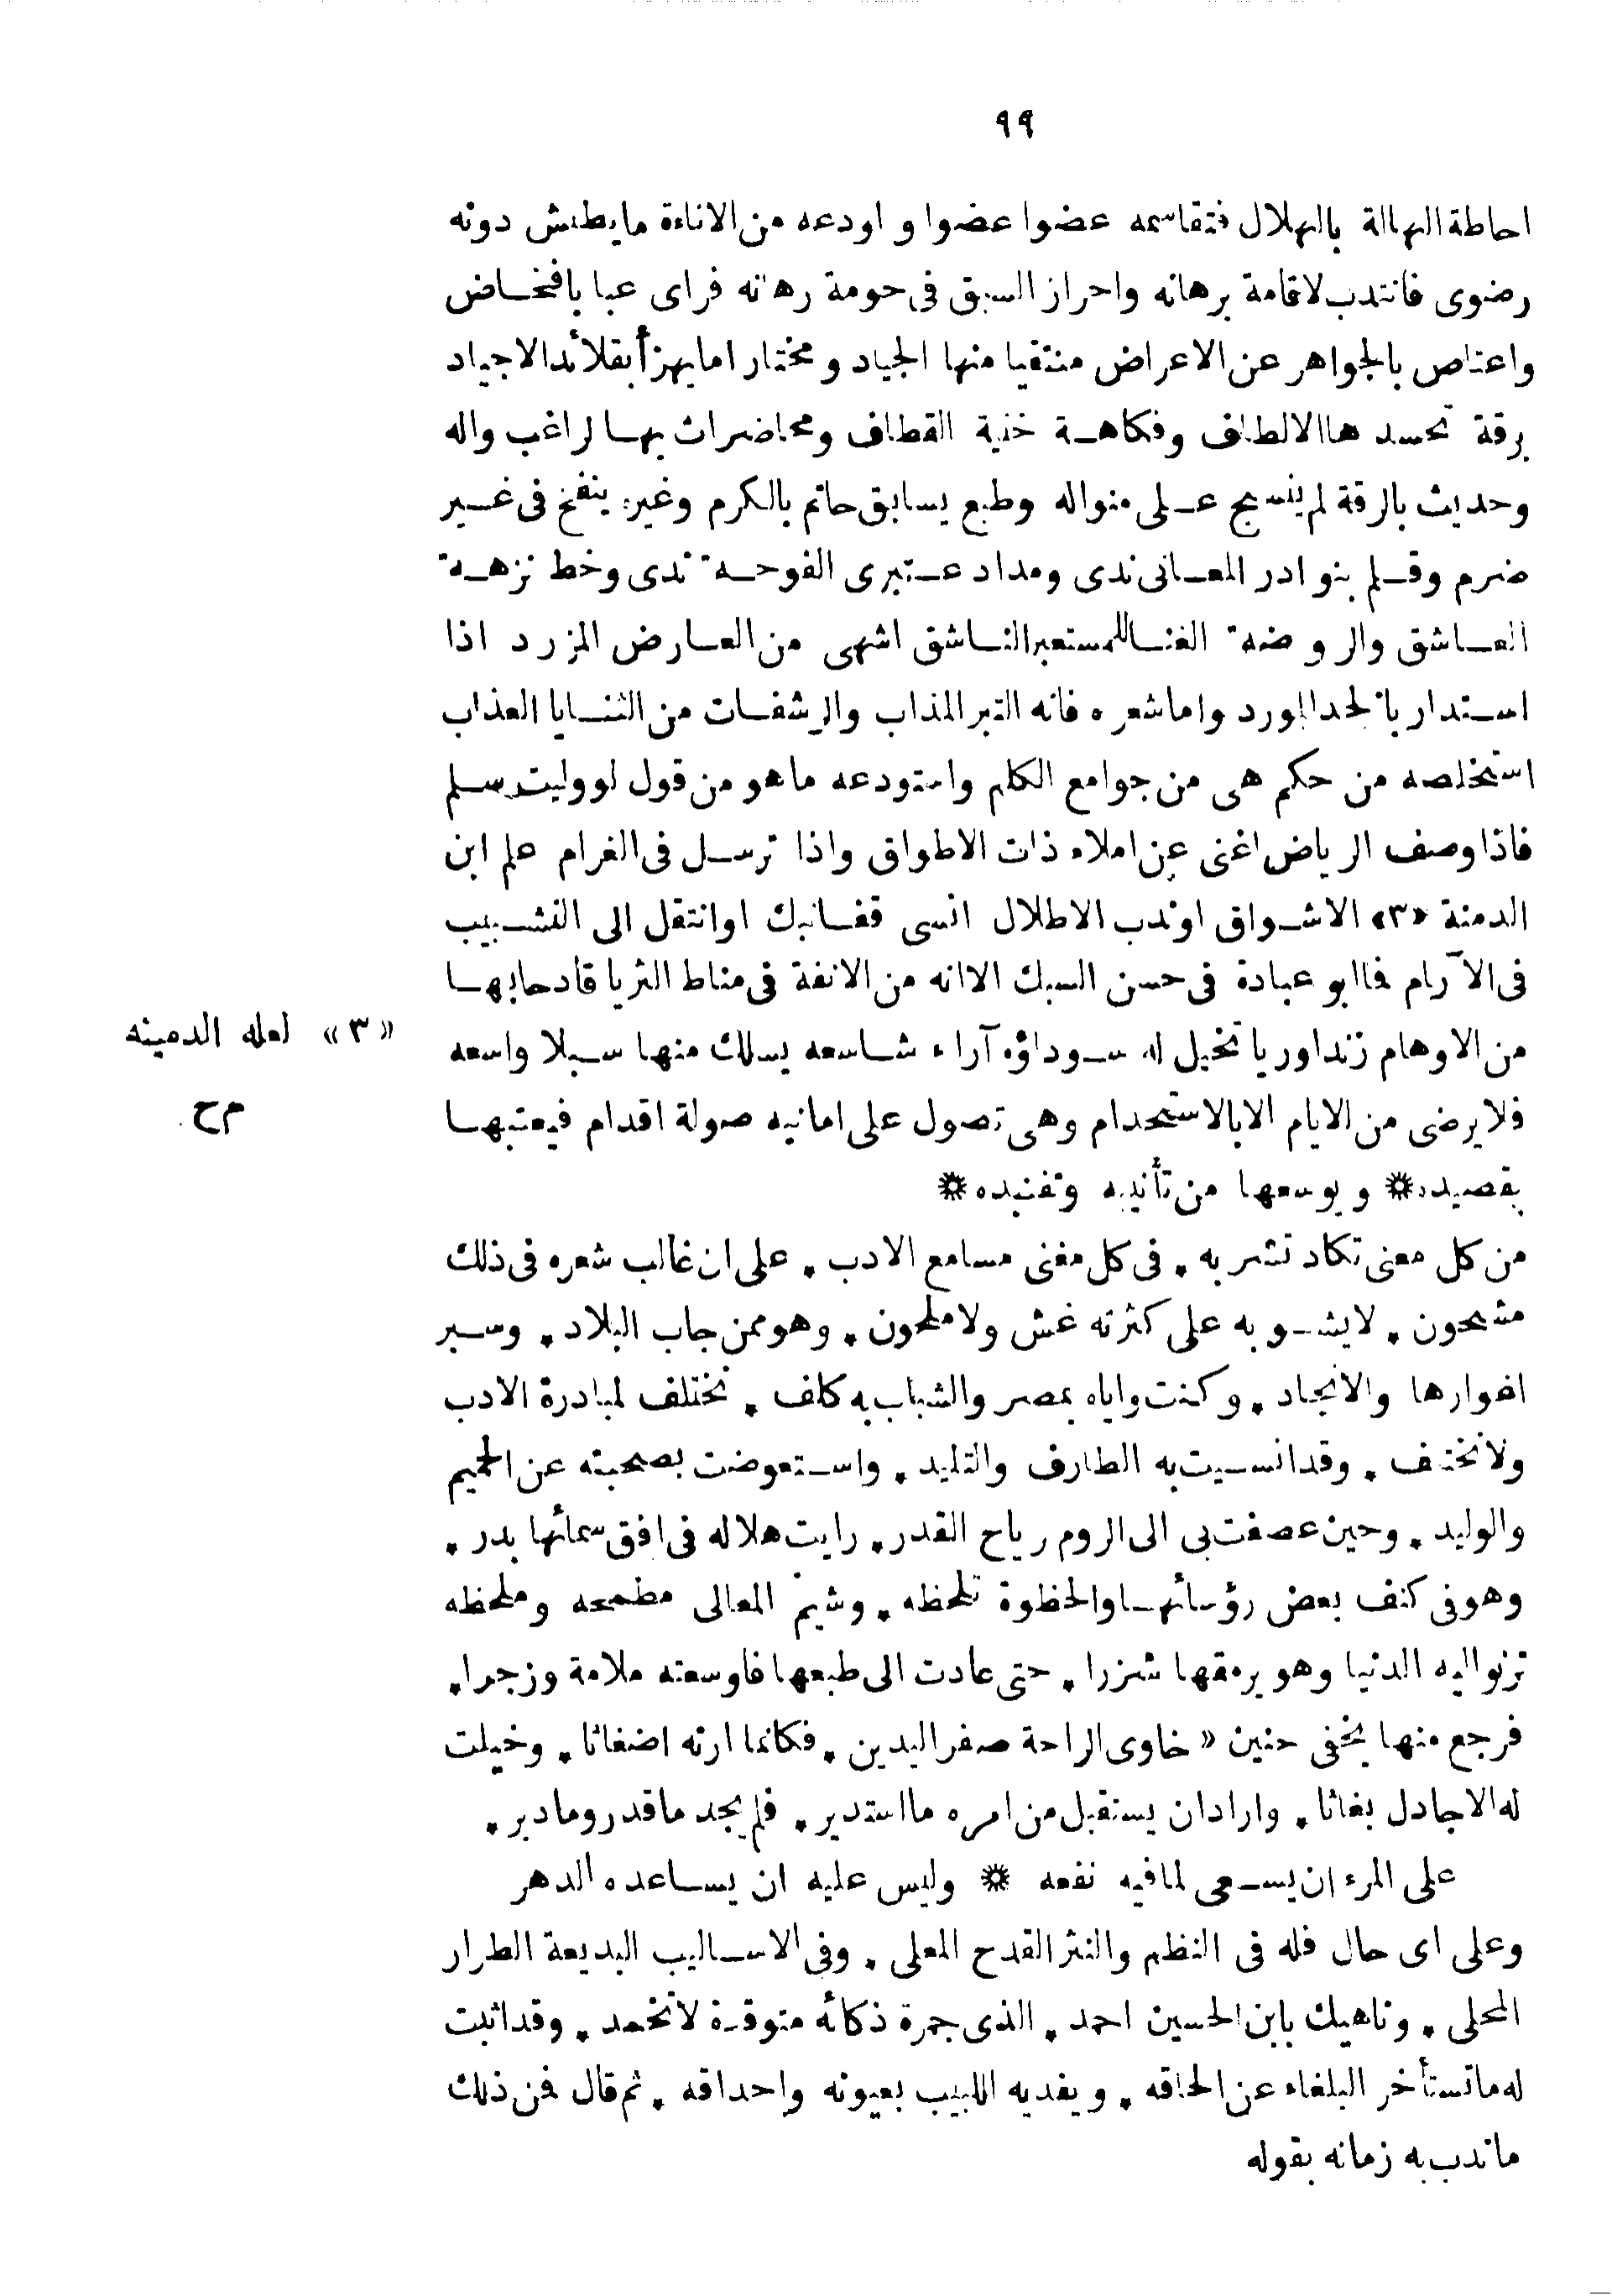 ٩٩
احاطة الهالة بالهلال فتقاسمه عضوا عضوا و اودعه من الاناءة مايطيش دونه
رضوى فانتدب لاقامة برهانه واحراز السبق فى حومة رهانه فراى عبابا فخاض
واعتاص بالجواهر عن الاعراض منتقيا منها الجياد و مختارا مايهزأ بقلائد الاجياد
برقة تحسدها الالطاف وفكاهة خنية القطاف ومحاضرات بها لراغب واله
وحديث بالرقة لم ينسج على منواله وطبع يسابق حاتم بالكرم وغيره ينفخ فى غير
ضرم وقلم بنوادر المعانى ندى ومداد عنبرى الفوحة ندى وخط نزهة
العاشق والروضة الغنا للمستعبر الناشق اشهى من العارض المزرد اذا
استدار بالخد المورد واما شعره فانه التبر المذاب والرشفات من الثنايا العذاب
استخلصه من حكم هى من جوامع الكلم واستودعه ماهو من قول لو وليت سلم
فاذا وصف الرياض اغنى عن املاء ذات الاطواق واذا ترسل فى الغرام علم ابن
الدمنة «٣» الاشواق اوندب الاطلال انسى قفانبك اوانتقل الى التشبيب
فى الآرام فاابو عبادة فى حسن السبك الاانه من الانفة فى مناط الثريا قادحابها
من الاوهام زنداوريا تخيل له سوداؤه آراء شاسعه يسلك منها سبلا واسعه
«٣» لعله الدمينه
م ح
فلايرضى من الايام الابالاستخدام وهى تصول على امانيه صولة اقدام فيعتبها
بقصيده * و يوسعها من تأنيبه وتفنيده *
من كل معنى تكاد تشربه * فى كل مغنى مسامع الادب * على ان غالب شعره فى ذلك
مشحون * لايشوبه على كثرته غش ولا ملحون * وهو ممن جاب البلاد * وسبر
اغوارها والانجاد * وكنت واياه بمصر والشباب به كلف * نختلف لمبادرة الادب
ولانختلف * وقدانسيت به الطارف والتليد * واستعوضت بصحبته عن الحميم
والوليد * وحين عصفت بى الى الروم رياح القدر * رايت هلاله فى افق سمائها بدر *
وهوفى كنف بعض رؤسائها والحظوة تلحظه * وشيم المعالى مطمعه وملحظه
ترنواليه الدنيا وهو يرمقها شزرا * حتى عادت الى طبعها فاوسعته ملامة وزجرا *
فرجع منها بخفى حنين « خاوى الراحة صفر اليدين * فكانما ارته اضغاثا * وخيلت
له الاجادل بغاثا * وارادان يستقبل من امره مااستدبر * فلم يجد ماقدر ومادبر *
على المرء ان يسعى لمافيه نفعه * وليس عليه ان يساعده الدهر
وعلى اى حال فله فى النظم والنثر القدح المعلى * وفى الاساليب البديعة الطراز
المحلى * وناهيك بابن الحسين احمد * الذى جمرة ذكائه متوقدة لاتخمد * وقد اثبت
له ماتستأخر البلغاء عن الحاقه * ويفديه اللبيب بعيونه واحداقه * ثم قال فمن ذلك
ماندب به زمانه بقوله